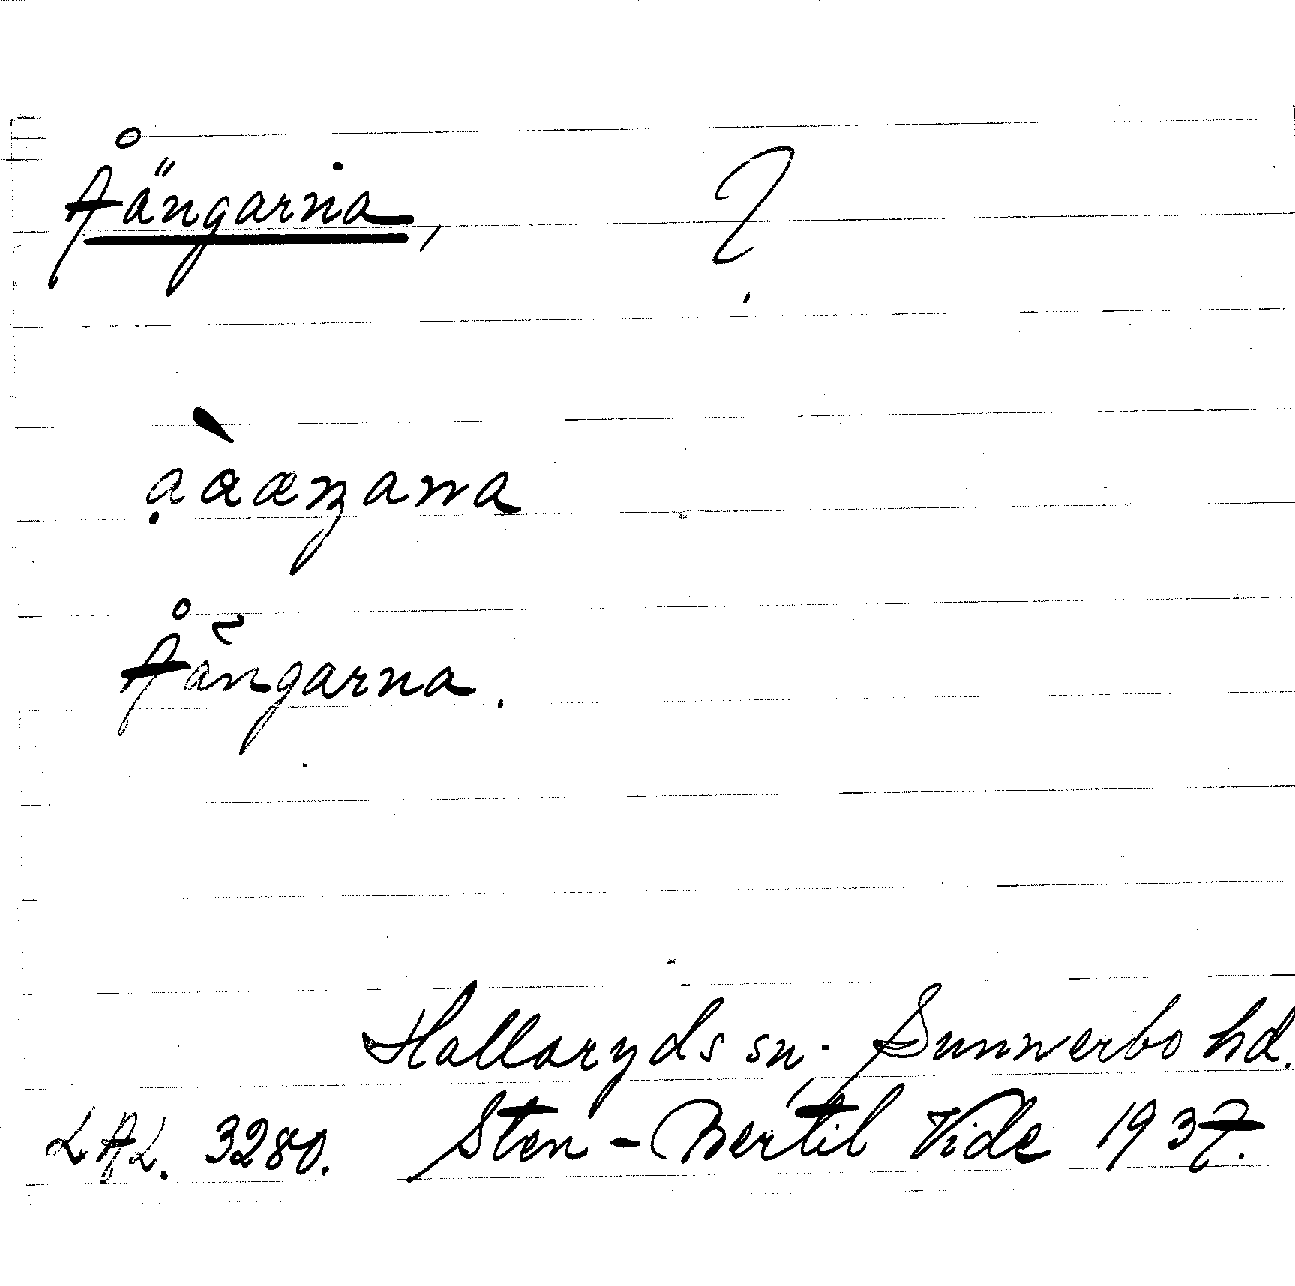 Åängarna, ?
ạàæŋaɹna
Åängarna.
Hallaryds sn. Sunnerbo hd.
LAL. 3280. Sten-Bertil Vide 1937.